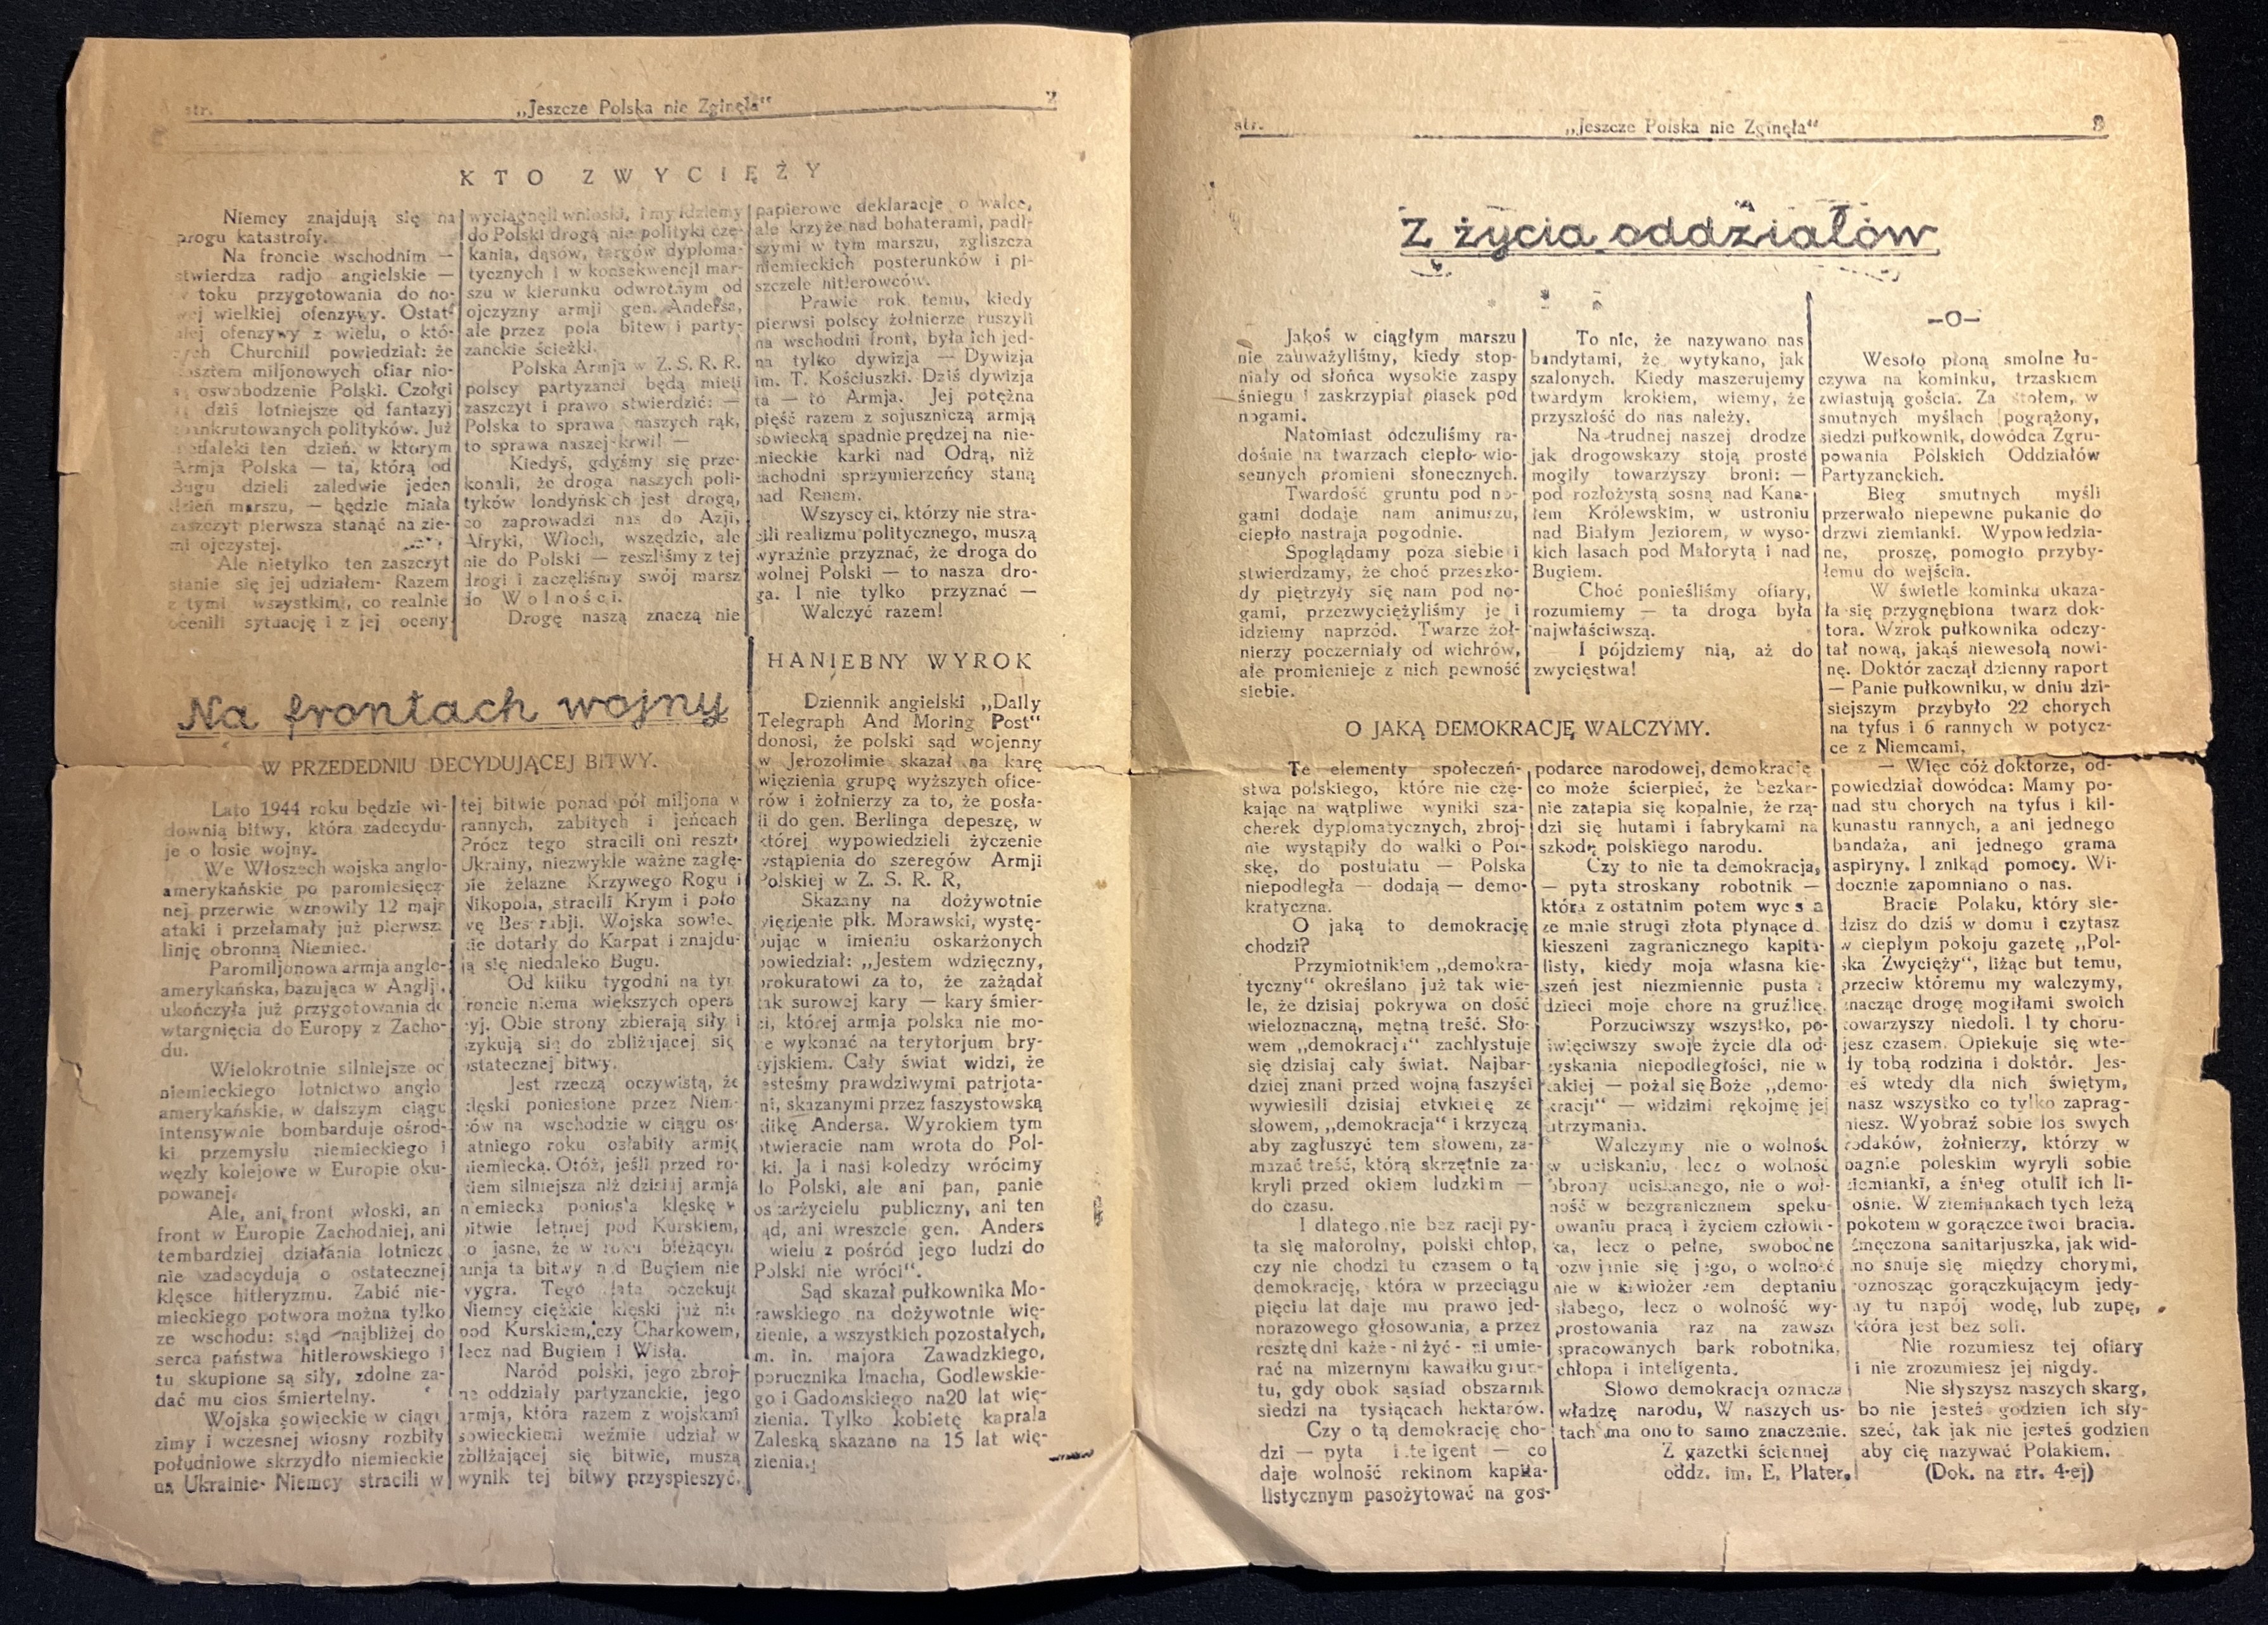 str. „Jeszcze Polska nie Zginęła“ 2
KTO ZWYCIĘŻY
Niemcy znajdują się na
progu katastrofy.
Na froncie wschodnim —
stwierdza radjo angielskie —
w toku przygotowania do no-
wej wielkiej ofenzywy. Ostat-
niej ofenzywy z wielu, o któ-
rych Churchill powiedział: że
kosztem miljonowych ofiar nio-
są oswobodzenie Polski. Czołgi
są dziś lotniejsze od fantazyj
zbankrutowanych polityków. Już
niedaleki ten dzień, w którym
Armja Polska — ta, którą od
Bugu dzieli zaledwie jeden
dzień marszu, — będzie miała
zaszczyt pierwsza stanąć na zie-
mi ojczystej.
Ale nietylko ten zaszczyt
stanie się jej udziałem. Razem
z tymi wszystkimi, co realnie
ocenili sytuację i z jej oceny
wyciągnęli wnioski, i my idziemy
do Polski drogą nie polityki cze-
kania, dąsów, targów dyploma-
tycznych i w konsekwencji mar-
szu w kierunku odwrotnym od
ojczyzny armji gen. Andersa,
ale przez pola bitew i party-
zanckie ścieżki.
Polska Armja w Z. S. R. R.
polscy partyzanci będą mieli
zaszczyt i prawo stwierdzić: —
Polska to sprawa naszych rąk,
to sprawa naszej krwi! —
Kiedyś, gdyśmy się prze-
konali, że droga naszych poli-
tyków londyńskich jest drogą,
co zaprowadzi nas do Azji,
Afryki, Włoch, wszędzie, ale
nie do Polski — zeszliśmy z tej
drogi i zaczęliśmy swój marsz
do Wolności.
Drogę naszą znaczą nie
papierowe deklaracje o walce,
ale krzyże nad bohaterami, padł-
szymi w tym marszu, zgliszcza
niemieckich posterunków i pi-
szczele hitlerowców.
Prawie rok temu, kiedy
pierwsi polscy żołnierze ruszyli
na wschodni front, była ich jed-
na tylko dywizja — Dywizja
im. T. Kościuszki. Dziś dywizja
ta — to Armja. Jej potężna
pięść razem z sojuszniczą armją
sowiecką spadnie prędzej na nie-
mieckie karki nad Odrą, niż
zachodni sprzymierzeńcy staną
nad Renem.
Wszyscy ci, którzy nie stra-
cili realizmu politycznego, muszą
wyraźnie przyznać, że droga do
wolnej Polski — to nasza dro-
ga. I nie tylko przyznać —
Walczyć razem!
Na frontach wojny
W PRZEDEDNIU DECYDUJĄCEJ BITWY.
Lato 1944 roku będzie wi-
downią bitwy, która zadecydu-
je o losie wojny.
We Włoszech wojska anglo-
amerykańskie po paromiesięcz-
nej przerwie wznowiły 12 maja
ataki i przełamały już pierwszą
linję obronną Niemiec.
Paromiljonowa armja anglo-
amerykańska, bazująca w Anglji,
ukończyła już przygotowania do
wtargnięcia do Europy z Zacho-
du.
Wielokrotnie silniejsze od
niemieckiego lotnictwo anglo
amerykańskie, w dalszym ciągu
intensywnie bombarduje ośrod-
ki przemysłu niemieckiego i
węzły kolejowe w Europie oku-
powanej.
Ale, ani front włoski, ani
front w Europie Zachodniej, ani
tembardziej działania lotnicze
nie zadecydują o ostatecznej
klęsce hitleryzmu. Zabić nie-
mieckiego potwora można tylko
ze wschodu: stąd najbliżej do
serca państwa hitlerowskiego i
tu skupione są siły, zdolne za-
dać mu cios śmiertelny.
Wojska sowieckie w ciągu
zimy i wczesnej wiosny rozbiły
południowe skrzydło niemieckie
na Ukrainie. Niemcy stracili w
tej bitwie ponad pół miljona w
rannych, zabitych i jeńcach
Prócz tego stracili oni resztę
Ukrainy, niezwykle ważne zagłę-
bie żelazne Krzywego Rogu i
Nikopola, stracili Krym i poło
wę Besarabji. Wojska sowiec-
kie dotarły do Karpat i znajdu-
ją się niedaleko Bugu.
Od kilku tygodni na tym
froncie niema większych opera
cyj. Obie strony zbierają siły i
szykują się do zbliżającej się
ostatecznej bitwy.
Jest rzeczą oczywistą, że
klęski poniesione przez Niem-
ców na wschodzie w ciągu os-
tatniego roku osłabiły armję
niemiecką. Otóż, jeśli przed ro-
kiem silniejsza niż dzisiaj armja
niemiecka poniosła klęskę w
bitwie letniej pod Kurskiem,
to jasne, że w roku bieżącym
armja ta bitwy nad Bugiem nie
wygra. Tego lata oczekują
Niemcy ciężkie klęski już nie
pod Kurskiem, czy Charkowem,
lecz nad Bugiem i Wisłą.
Naród polski, jego zbroj-
ne oddziały partyzanckie, jego
armja, która razem z wojskami
sowieckiemi weźmie udział w
zbliżającej się bitwie, muszą
wynik tej bitwy przyspieszyć.
HANIEBNY WYROK
Dziennik angielski „Daily
Telegraph And Moring Post“
donosi, że polski sąd wojenny
w Jerozolimie skazał na karę
więzienia grupę wyższych ofice-
rów i żołnierzy za to, że posła-
li do gen. Berlinga depeszę, w
której wypowiedzieli życzenie
wstąpienia do szeregów Armji
Polskiej w Z. S. R. R,
Skazany na dożywotnie
więzienie płk. Morawski, wystę-
pując w imieniu oskarżonych
powiedział: „Jestem wdzięczny,
prokuratowi za to, że zażądał
tak surowej kary — kary śmier-
ci, której armja polska nie mo-
że wykonać na terytorjum bry-
tyjskiem. Cały świat widzi, że
jesteśmy prawdziwymi patrjota-
mi, skazanymi przez faszystowską
klikę Andersa. Wyrokiem tym
otwieracie nam wrota do Pol-
ski. Ja i nasi koledzy wrócimy
do Polski, ale ani pan, panie
oskarżycielu publiczny, ani ten
sąd, ani wreszcie gen. Anders
i wielu z pośród jego ludzi do
Polski nie wróci“.
Sąd skazał pułkownika Mo-
rawskiego na dożywotnie wię-
zienie, a wszystkich pozostałych,
m. in. majora Zawadzkiego,
porucznika Imacha, Godlewskie-
go i Gadomskiego na20 lat wię-
zienia. Tylko kobietę kaprala
Zaleską skazano na 15 lat wię-
zienia.
str. „Jeszcze Polska nie Zginęła“ 3
Z życia oddziałów
Jakoś w ciągłym marszu
nie zauważyliśmy, kiedy stop-
niały od słońca wysokie zaspy
śniegu i zaskrzypiał piasek pod
nogami.
Natomiast odczuliśmy ra-
dośnie na twarzach ciepło wio-
sennych promieni słonecznych.
Twardość gruntu pod no-
gami dodaje nam animuszu,
ciepło nastraja pogodnie.
Spoglądamy poza siebie i
stwierdzamy, że choć przeszko-
dy piętrzyły się nam pod no-
gami, przezwyciężyliśmy je i
idziemy naprzód. Twarze żoł-
nierzy poczerniały od wichrów,
ale promienieje z nich pewność
siebie.
To nic, że nazywano nas
bandytami, że wytykano, jak
szalonych. Kiedy maszerujemy
twardym krokiem, wiemy, że
przyszłość do nas należy.
Na trudnej naszej drodze
jak drogowskazy stoją proste
mogiły towarzyszy broni: —
pod rozłożystą sosną nad Kana-
łem Królewskim, w ustroniu
nad Białym Jeziorem, w wyso-
kich lasach pod Małorytą i nad
Bugiem.
Choć ponieśliśmy ofiary,
rozumiemy — ta droga była
najwłaściwszą.
I pójdziemy nią, aż do
zwycięstwa!
O JAKĄ DEMOKRACJĘ WALCZYMY.
Te elementy społeczeń-
stwa polskiego, które nie cze-
kając na wątpliwe wyniki sza-
cherek dyplomatycznych, zbroj-
nie wystąpiły do walki o Pol-
skę, do postulatu — Polska
niepodległa — dodają — demo-
kratyczna.
O jaką to demokrację
chodzi?
Przymiotnikiem „demokra-
tyczny“ określano już tak wie-
le, że dzisiaj pokrywa on dość
wieloznaczną, mętną treść. Sło-
wem „demokracja“ zachłystuje
się dzisiaj cały świat. Najbar-
dziej znani przed wojną faszyści
wywiesili dzisiaj etykietę ze
słowem, „demokracja“ i krzyczą
aby zagłuszyć tem słowem, za-
mazać treść, którą skrzętnie za-
kryli przed okiem ludzkim —
do czasu.
I dlatego nie bez racji py-
ta się małorolny, polski chłop,
czy nie chodzi tu czasem o tą
demokrację, która w przeciągu
pięciu lat daje mu prawo jed-
norazowego głosowania, a przez
resztę dni każe - ni żyć - ni umie-
rać na mizernym kawałku grun-
tu, gdy obok sąsiad obszarnik
siedzi na tysiącach hektarów.
Czy o tą demokrację cho-
dzi — pyta inteligent — co
daje wolność rekinom kapita-
listycznym pasożytować na gos-
podarce narodowej, demokrację
co może ścierpieć, że bezkar-
nie zatapia się kopalnie, że rzą-
dzi się hutami i fabrykami na
szkodę polskiego narodu.
Czy to nie ta demokracja,
— pyta stroskany robotnik —
która z ostatnim potem wyciska
ze mnie strugi złota płynące do
kieszeni zagranicznego kapita-
listy, kiedy moja własna kie-
szeń jest niezmiennie pusta a
dzieci moje chore na gruźlicę.
Porzuciwszy wszystko, po-
święciwszy swoje życie dla od-
zyskania niepodległości, nie w
takiej — pożal się Boże „demo-
kracji“ — widzimi rękojmę jej
utrzymania.
Walczymy nie o wolność
w uciskaniu, lecz o wolność
obrony uciskanego, nie o wol-
ność w bezgranicznem speku-
lowaniu pracą i życiem człowie-
ka, lecz o pełne, swobodne
rozwijanie się jego, o wolność
nie w krwiożerczem deptaniu
słabego, lecz o wolność wy-
prostowania raz na zawsze
spracowanych bark robotnika,
chłopa i inteligenta.
Słowo demokracja oznacza
władzę narodu, W naszych us-
tach ma ono to samo znaczenie.
Z gazetki ściennej
oddz. im. E. Plater.
—o—
Wesoło płoną smolne łu-
czywa na kominku, trzaskiem
zwiastują gościa. Za stołem, w
smutnych myślach pogrążony,
siedzi pułkownik, dowódca Zgru-
powania Polskich Oddziałów
Partyzanckich.
Bieg smutnych myśli
przerwało niepewne pukanie do
drzwi ziemianki. Wypowiedzia-
ne, proszę, pomogło przyby-
łemu do wejścia.
W świetle kominka ukaza-
ła się przygnębiona twarz dok-
tora. Wzrok pułkownika odczy-
tał nową, jakąś niewesołą nowi-
nę. Doktór zaczął dzienny raport
— Panie pułkowniku, w dniu dzi-
siejszym przybyło 22 chorych
na tyfus i 6 rannych w potycz-
ce z Niemcami.
— Więc cóż doktorze, od-
powiedział dowódca: Mamy po-
nad stu chorych na tyfus i kil-
kunastu rannych, a ani jednego
bandaża, ani jednego grama
aspiryny. I znikąd pomocy. Wi-
docznie zapomniano o nas.
Bracie Polaku, który sie-
dzisz do dziś w domu i czytasz
w ciepłym pokoju gazetę „Pol-
ska Zwycięży“, liżąc but temu,
przeciw któremu my walczymy,
znacząc drogę mogiłami swoich
towarzyszy niedoli. I ty choru-
jesz czasem. Opiekuje się wte-
dy tobą rodzina i doktór. Jes-
teś wtedy dla nich świętym,
masz wszystko co tylko zaprag-
niesz. Wyobraź sobie los swych
rodaków, żołnierzy, którzy w
bagnie poleskim wyryli sobie
ziemianki, a śnieg otulił ich li-
tośnie. W ziemiankach tych leżą
pokotem w gorączce twoi bracia.
Zmęczona sanitarjuszka, jak wid-
mo snuje się między chorymi,
roznosząc gorączkującym jedy-
ny tu napój wodę, lub zupę,
która jest bez soli.
Nie rozumiesz tej ofiary
i nie zrozumiesz jej nigdy.
Nie słyszysz naszych skarg,
bo nie jesteś godzien ich sły-
szeć, tak jak nie jesteś godzien
aby cię nazywać Polakiem.
(Dok. na str. 4-ej)